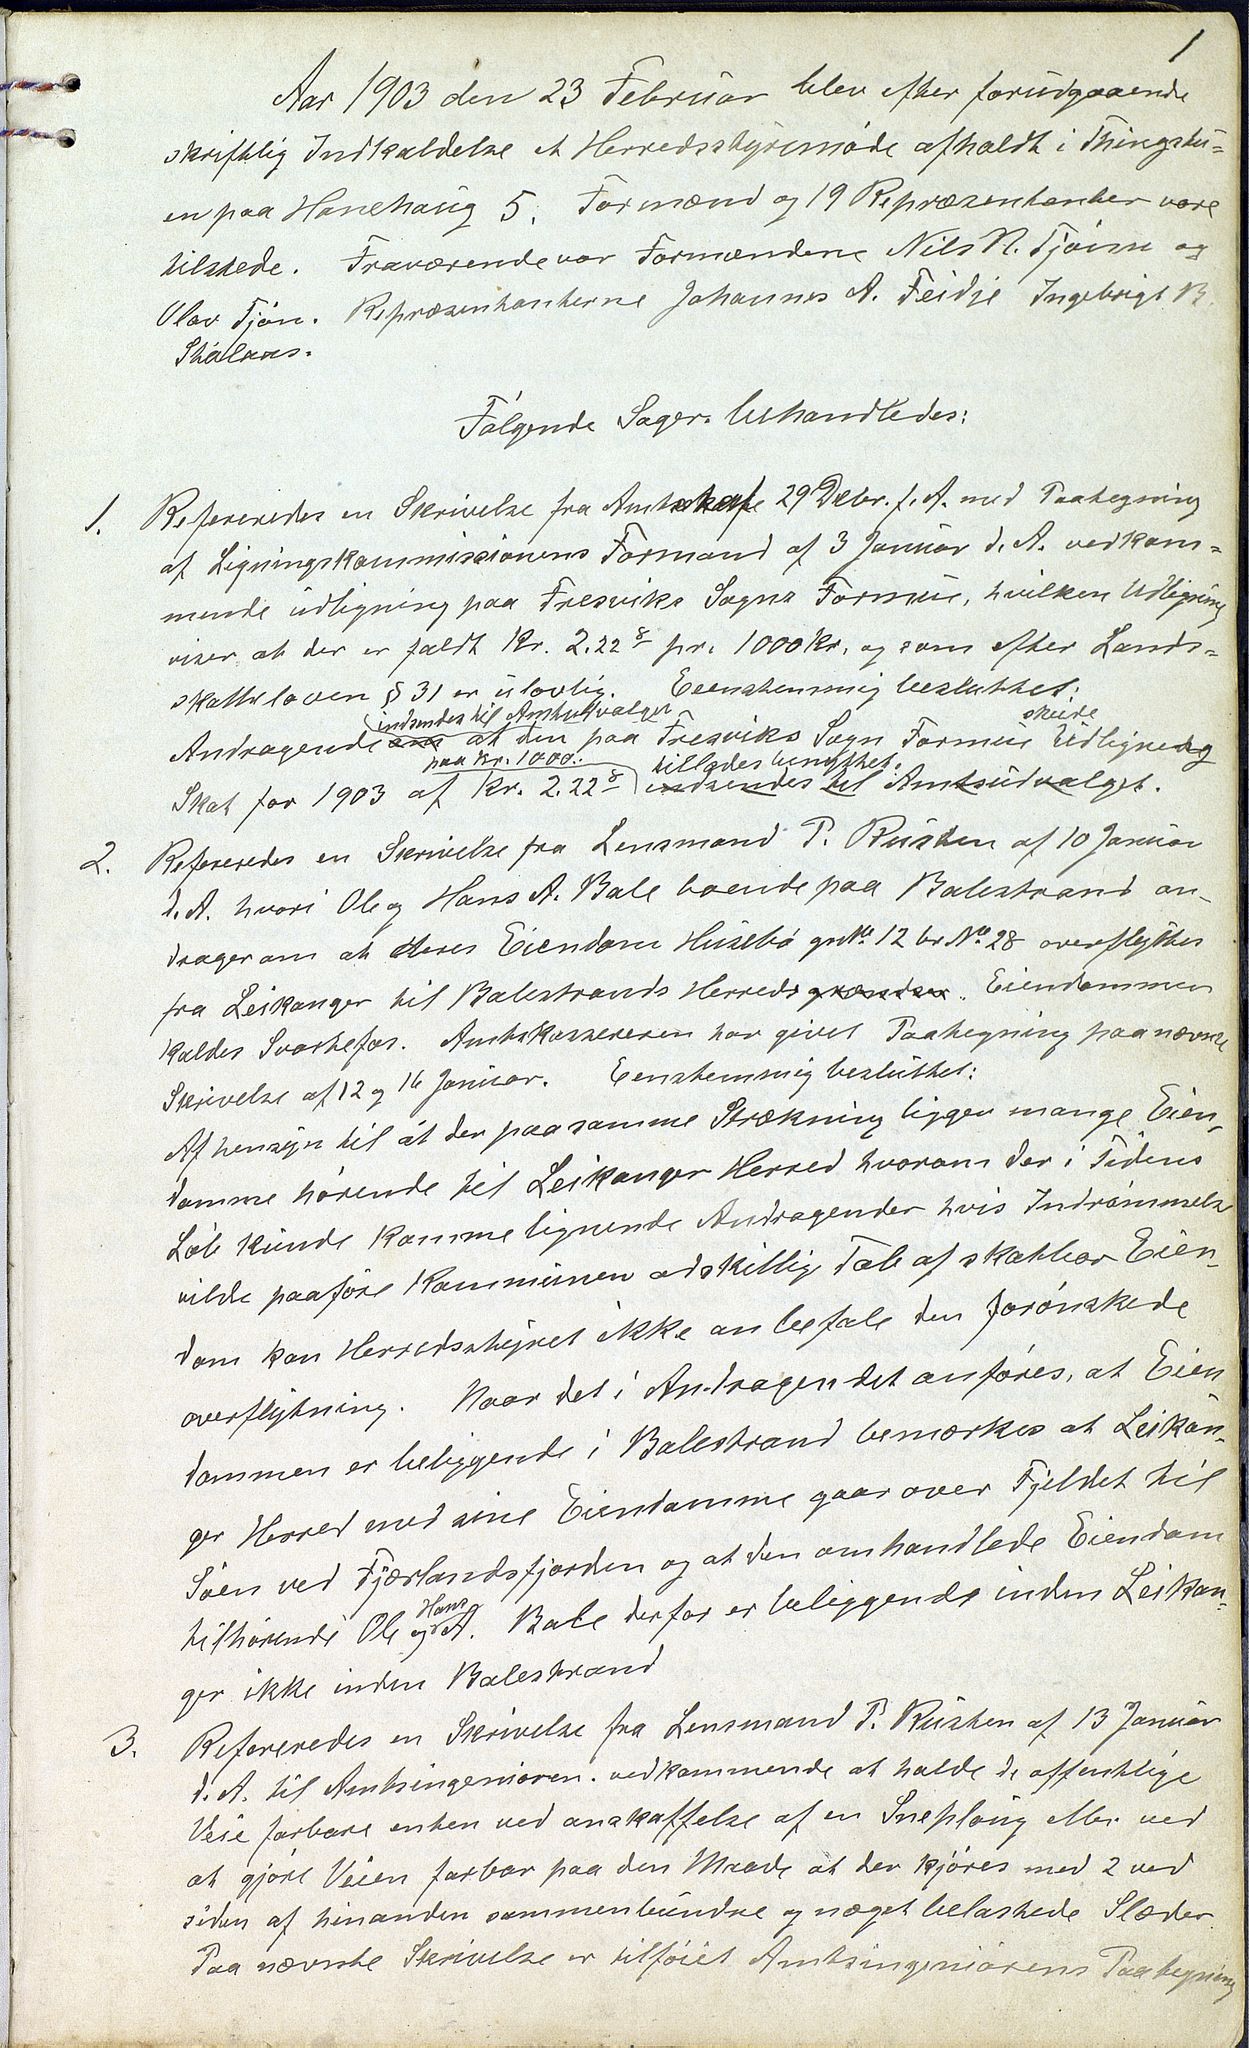 1
Aar 1903 den 23 Februar blev efter forudgaaende
skriftlig Indkaldelse et Herredsstyremøde afholdt i Thingstu-
en paa Hanehaug 5. Formænd og 19 Repræsentanter vare
tilstede. Fraværende var Formændene Nils N. Tjønn og
Olav Tjøn. Repræsentanterne Johannes A. Feidje Ingebrigt B.
Skalaas.
Følgende Sager. behandledes:
1. Refereredes en Skrivelse fra Amtskaf 29 Dzbr. f. A. med Paategning
af Ligningskommissionens Formand af 3 Januar d. A. vedkom-
mende udligning paa Fresviks Sogns Formue, hvilken Udligning
viser at der er faldt Kr. 2.22 8 pr. 1000 Kr. og som efter Lands-
skatteloven § 31 er ulovlig. Eenstemmig besluttet:
indsendes til Amtsudvalget skeede
Andragende om at den paa Fresviks Sogn Formue Udligning
paa Kr. 1000. tillades benyttet.
Skat for 1903 af Kr. 2.22 8 indsendes til Amtsudvalget.
2. Refereredes en Skrivelse fra Lensmand P. Rusten af 10 Januar
d. A. hvori Ole og Hans A. Bale boende paa Balestrand an-
drager om at deres Eiendom Husebø gn No. 12 br No. 28 overflyttes
fra Leikanger til Balestrands Herredsgrændser. Eiendommen
kaldes Svartefos. Amtskassereren har givet Paategning paa nævnte
Skrivelse af 12 og 16 Januar. Eenstemmig besluttet:
Af hensyn til at der paa samme Strækning ligger mange Eien-
domme hørende til Leikanger Herred hvorom der i Tidens
Løb kunde komme lignende Andragender hvis Indrømmelse
vilde paaføre Kommunen adskillig Tab af skatbar Eien-
dom kan Herredsstyret ikke anbefale den forønskede
overflytning. Naar det i Andragendet anføres, at Eien-
dommen er beliggende i Balestrand bemærkes at Leikan-
ger Herred med sine Eiendomme gaar over Fjeldet til
Søen ved Fjærlandsfjorden og at den omhandlede Eiendom
Hans
tilhørende Ole og A. Bale derfor er beliggende inden Leikan-
ger ikke inden Balestrand
3. Refereredes en Skrivelse fra Lensmand P. Rusten af 13 Januar
d. A. til Amtsingeniøren. vedkommende at holde de offentlige
Veie farbare enten ved anskaffelse af en Sneploug eller ved
at gjøre Veien farbar paa den Maade at der kjøres med 2 ved
siden af hinanden sammenbundne og noget belastede Slæder.
Paa nævnte Skrivelse er tilføiet Amtsingeniørens Paategning